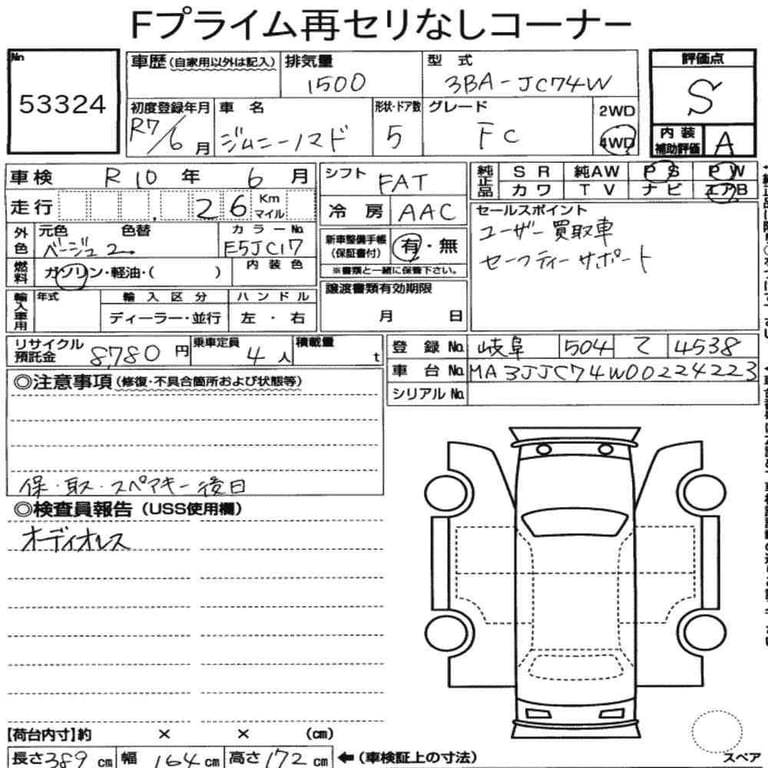 Fプライム再セリなしコーナー
No 53324
車歴(自家用以外は記入) 排気量 1500 型式 3BA-JC74W 評価点 S
初度登録年月 R7/6月 車名 ジムニーノマド 形状・ドア数 5 グレード FC 2WD 4WD
内装補助評価 A
車検 R10年 6月 シフト FAT 純正品 SR 純AW PS PW
カワ TV ナビ エアB
走行 26 Km マイル 冷房 AAC
セールスポイント
ユーザー買取車
セーフティーサポート
外色 元色 色替 カラーNo. 新車整備手帳(保証書付) 有・無
ベージュ2 E5JC17 ※書類と一緒に保管下さい。
燃料 ガソリン・軽油・( ) 内装色
輸入車用 年式 輸入区分 ハンドル 譲渡書類有効期限
ディーラー・並行 左・右 月 日
リサイクル預託金 8,780円 乗車定員 4人 積載量 t
登録No. 岐阜 504 て 4538
車台No. MA3JJC74W00224223
シリアルNo.
◎注意事項(修復・不具合箇所および状態等)
保・取・スペアキー後日
◎検査員報告(USS使用欄)
オーディオレス
【荷台内寸】約 × × (cm)
長さ389cm 幅164cm 高さ172cm ←(車検証上の寸法)
スペア